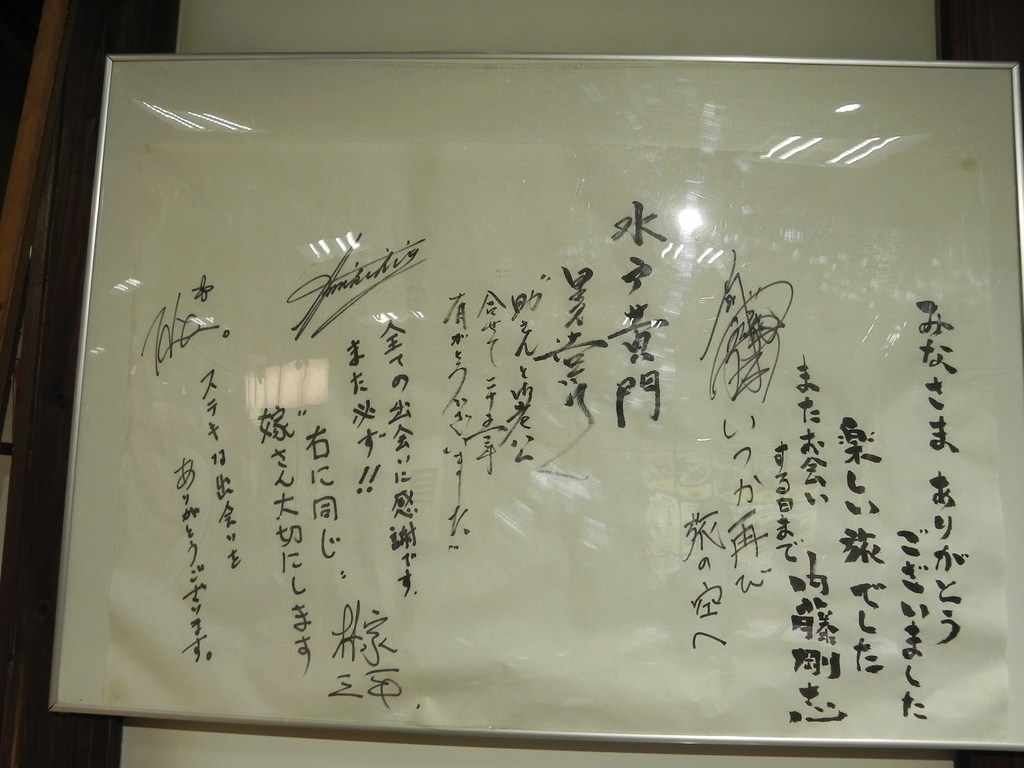 みなさま ありがとう
ございました
楽しい旅でした
またお会い
する日まで
内藤剛志
いつか再び
旅の空へ
水戸黄門
"助さんと御老公
合せて二十五年
有がとうございました"
全ての出会いに感謝です。
また必ず!!
"右に同じ"
嫁さん大切にします
林家三平
ステキな出会いを
ありがとうございます。